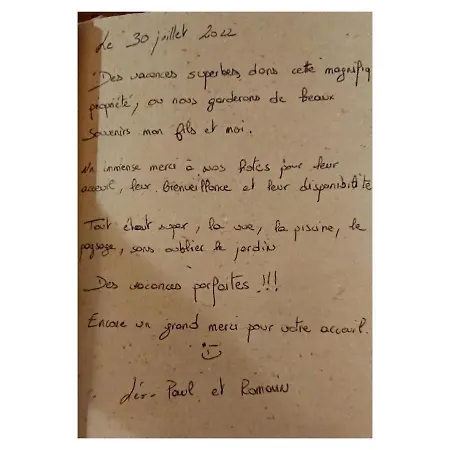 Le 30 juillet 2022
Des vacances superbes dans cette magnifiq
propriété, ou nous garderons de beaux
souvenirs mon fils et moi.
Un immense merci à nos hôtes pour leur
acceuil, leur bienveillance et leur disponibilité
Tout était super, la vue, la piscine, le
paysage, sans oublier le jardin
Des vacances parfaites !!!
Encore un grand merci pour votre acceuil.
Paul et Romain